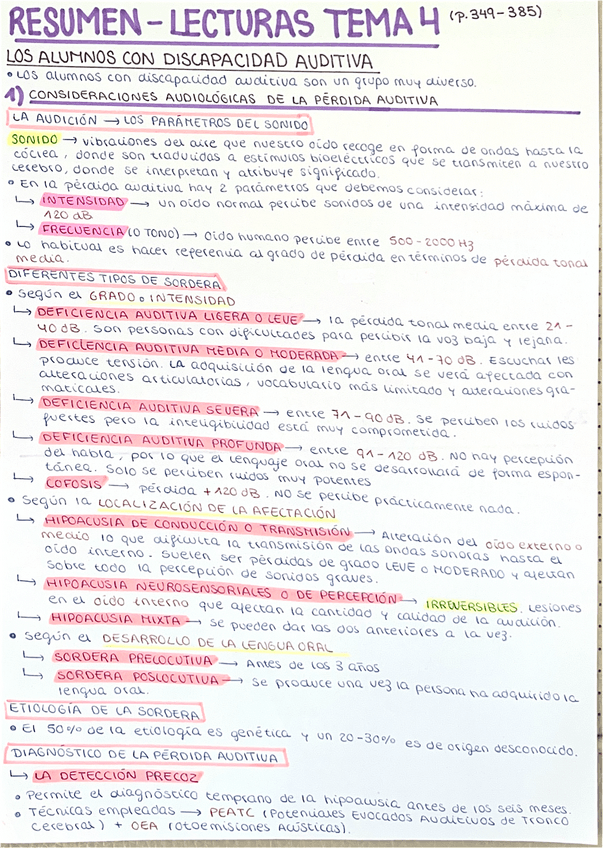 RESUMEN - LECTURAS TEMA 4 (p.349-385)
LOS ALUMNOS CON DISCAPACIDAD AUDITIVA
• Los alumnos con discapacidad auditiva son un grupo muy diverso.
1) CONSIDERACIONES AUDIOLÓGICAS DE LA PÉRDIDA AUDITIVA
LA AUDICIÓN → LOS PARÁMETROS DEL SONIDO
SONIDO → vibraciones del aire que nuestro oído recoge en forma de ondas hasta la
cóclea, donde son traducidas a estímulos bioeléctricos que se transmiten a nuestro
cerebro, donde se interpretan y atribuye significado.
• En la pérdida auditiva hay 2 parámetros que debemos considerar:
↳ INTENSIDAD → un oído normal percibe sonidos de una intensidad máxima de
120 dB
↳ FRECUENCIA (O TONO) → Oído humano percibe entre 500-2000 Hz
• Lo habitual es hacer referencia al grado de pérdida en términos de pérdida tonal
media.
DIFERENTES TIPOS DE SORDERA
• Según el GRADO o INTENSIDAD
↳ DEFICIENCIA AUDITIVA LIGERA O LEVE → la pérdida tonal media entre 21-
40 dB. Son personas con dificultades para percibir la voz baja y lejana.
↳ DEFICIENCIA AUDITIVA MEDIA O MODERADA → entre 41-70 dB. Escuchar les
produce tensión. La adquisición de la lengua oral se verá afectada con
alteraciones articulatorias, vocabulario más limitado y alteraciones gra-
maticales.
↳ DEFICIENCIA AUDITIVA SEVERA → entre 71-90 dB. Se perciben los ruidos
fuertes pero la inteligibilidad está muy comprometida.
↳ DEFICIENCIA AUDITIVA PROFUNDA → entre 91-120 dB. No hay percepción
del habla, por lo que el lenguaje oral no se desarrollará de forma espon-
tánea. Solo se perciben ruidos muy potentes
↳ COFOSIS → pérdida +120 dB. NO se percibe prácticamente nada.
• Según la LOCALIZACIÓN DE LA AFECTACIÓN
↳ HIPOACUSIA DE CONDUCCIÓN O TRANSMISIÓN → Alteración del oído externo o
medio lo que dificulta la transmisión de las ondas sonoras hasta el
oído interno. Suelen ser pérdidas de grado LEVE O MODERADO y afectan
sobre todo la percepción de sonidos graves.
↳ HIPOACUSIA NEUROSENSORIALES O DE PERCEPCIÓN → IRREVERSIBLES. Lesiones
en el oído interno que afectan la cantidad y calidad de la audición.
↳ HIPOACUSIA MIXTA → se pueden dar las dos anteriores a la vez.
• Según el DESARROLLO DE LA LENGUA ORAL
↳ SORDERA PRELOCUTIVA → Antes de los 3 años
↳ SORDERA POSLOCUTIVA → Se produce una vez la persona ha adquirido la
lengua oral.
ETIOLOGÍA DE LA SORDERA
• El 50% de la etiología es genética y un 20-30% es de origen desconocido.
DIAGNÓSTICO DE LA PÉRDIDA AUDITIVA
↳ LA DETECCIÓN PRECOZ
• Permite el diagnóstico temprano de la hipoacusia antes de los seis meses.
• Técnicas empleadas → PEATC (Potenciales Evocados Auditivos de Tronco
Cerebral) + OEA (Otoemisiones Acústicas).